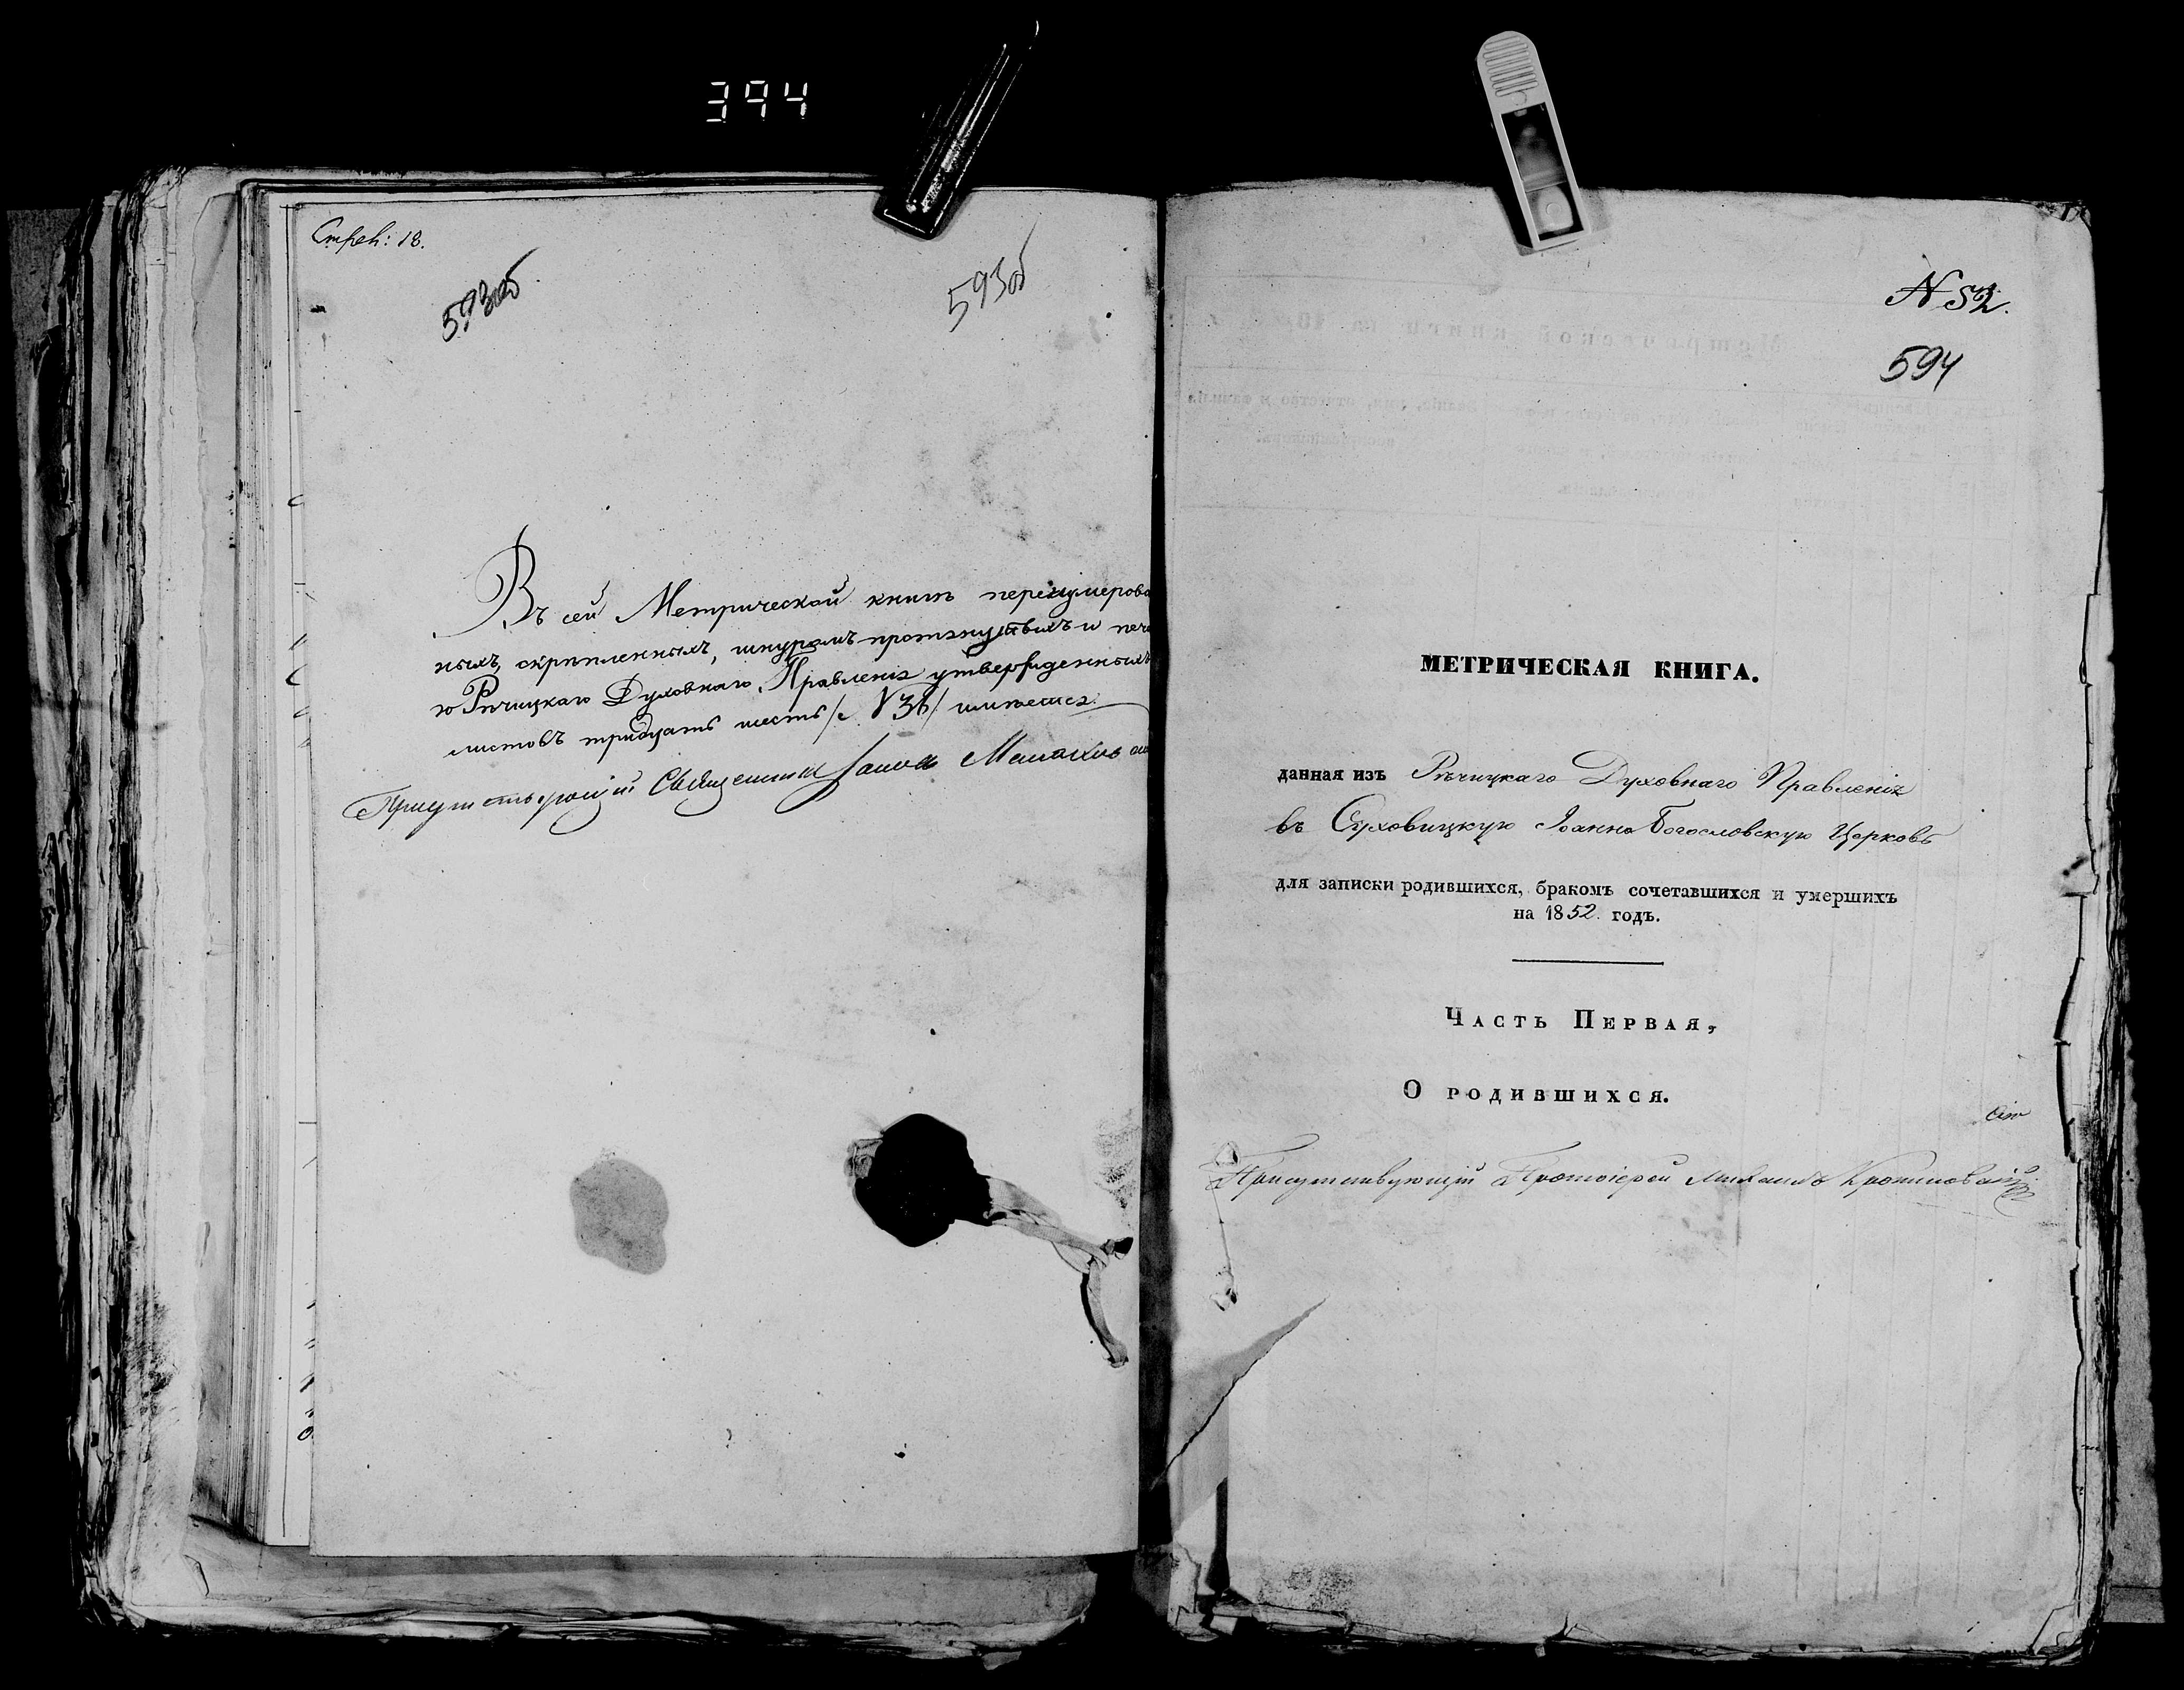 394
Стрек: 18.
593об.
593об
Въ сей Метрической книгѣ перенумерова
ныхъ, скрѣпленныхъ, шнуромъ протянутыхъ и печа
ю Рѣчицкаго Духовнаго Правленія утвержденныхъ
листовъ тридцать шесть /№ 36/ имѣется.
Присутствующій Священникъ
N 52.
594
МЕТРИЧЕСКАЯ КНИГА.
данная изъ Рѣчицкаго Духовнаго Правленія
въ Суховицкую Іоанно Богословскую Церковь
для записки родившихся, бракомъ сочетавшихся и умершихъ
на 1852 годъ.
ЧАСТЬ ПЕРВАЯ,
О РОДИВШИХСЯ.
Присутствующій Протоіерей Михаилъ